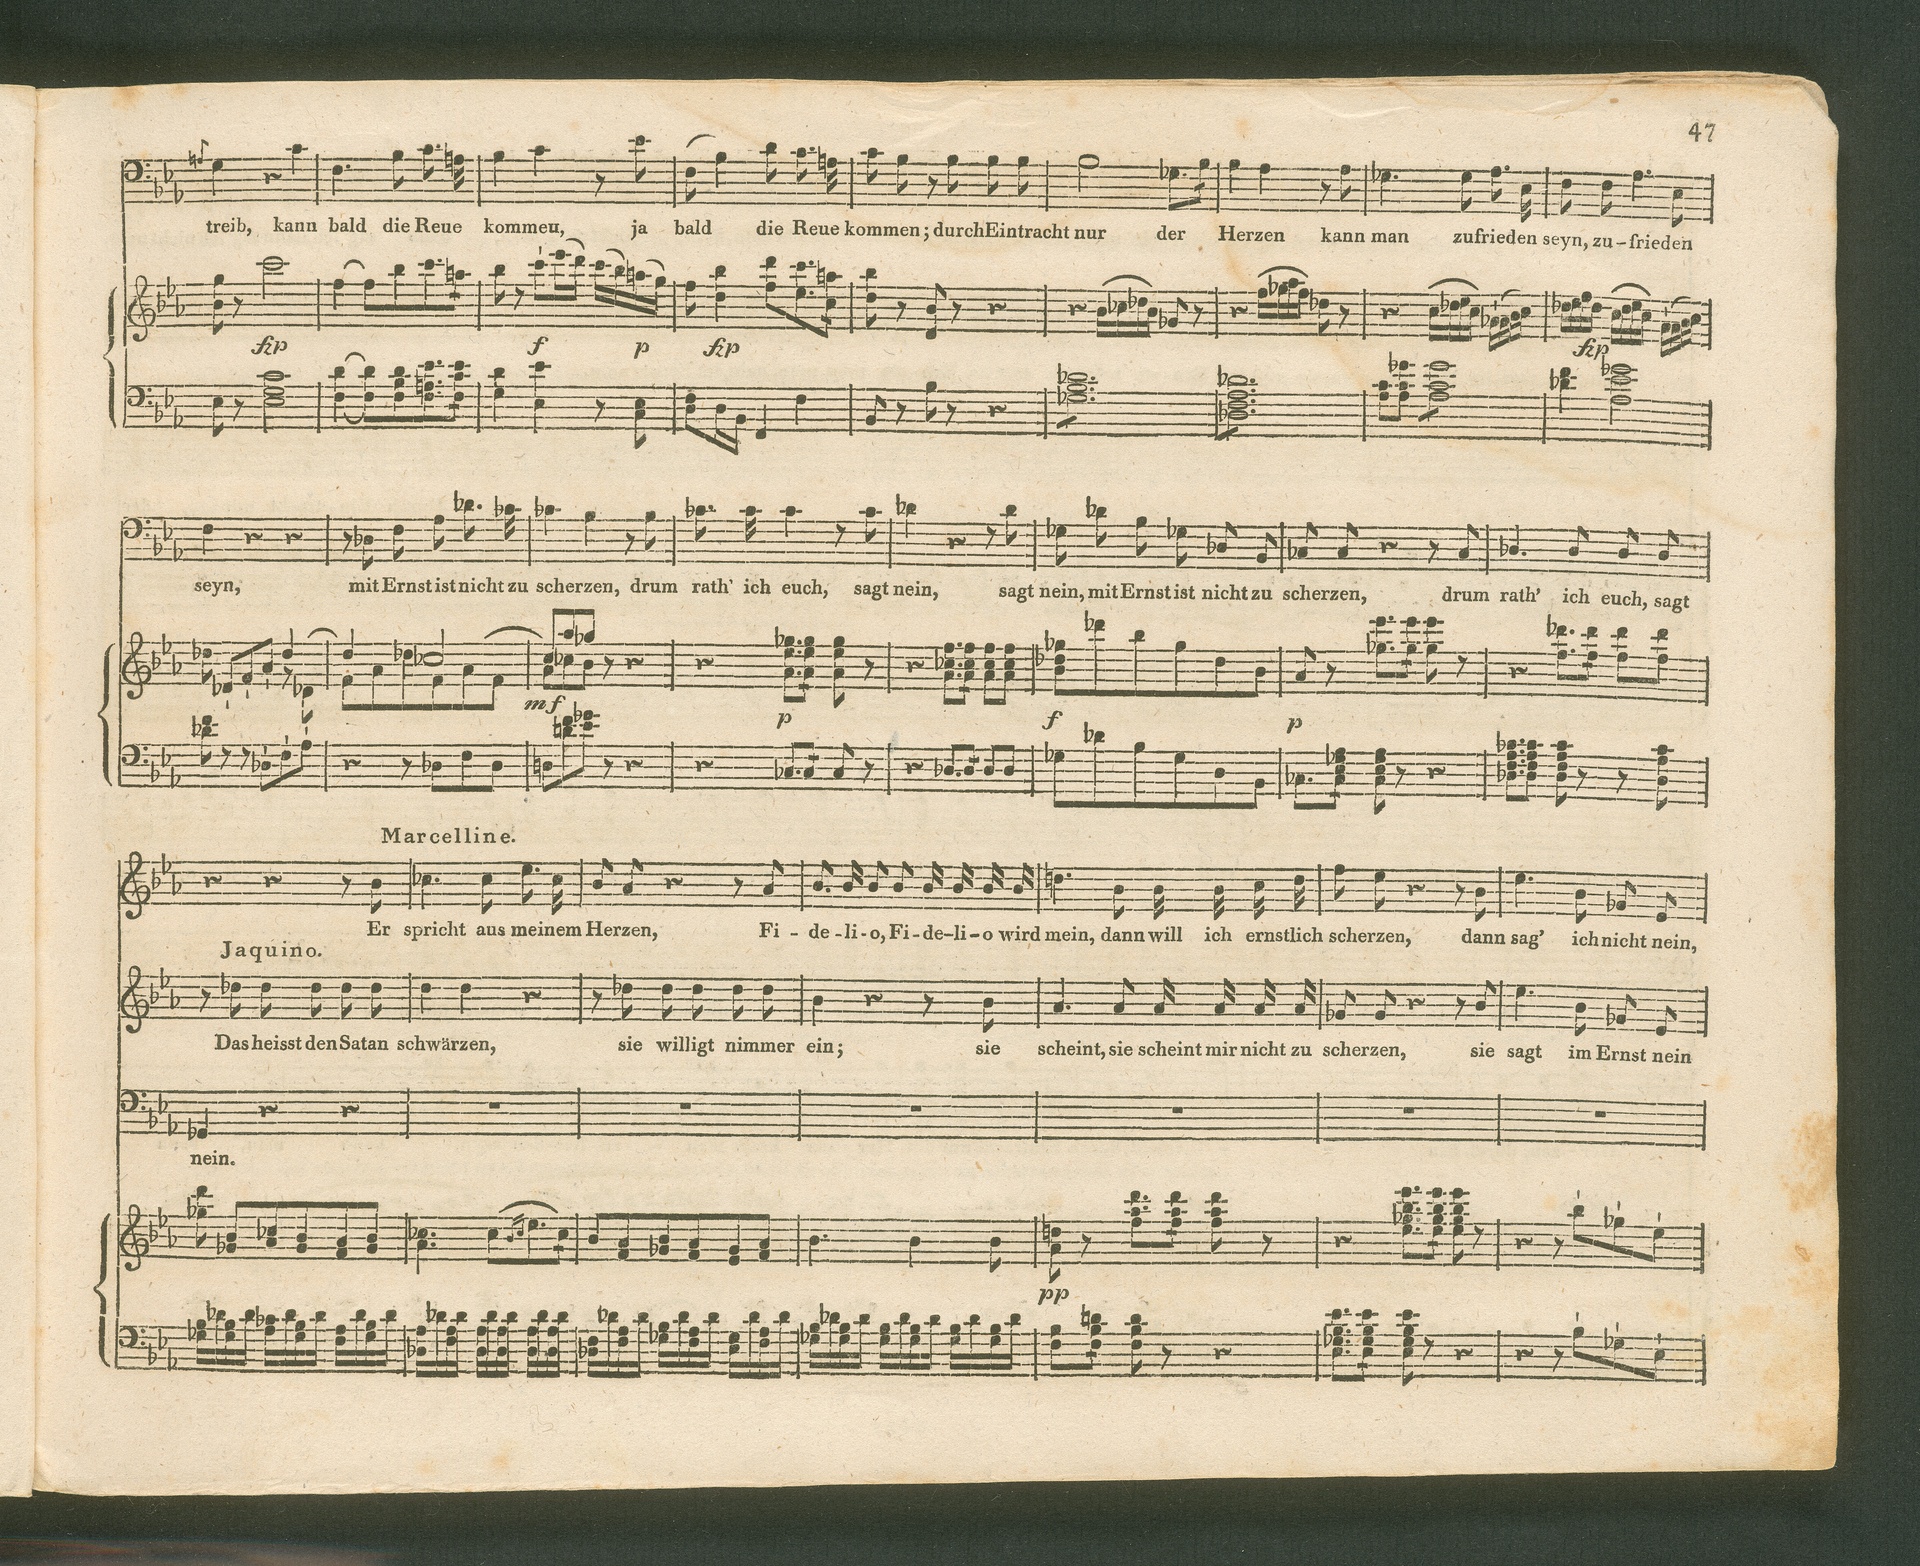 47
treib, kann bald die Reue kommen, ja bald die Reue kommen; durch Eintracht nur der Herzen kann man zufrieden seyn, zu-frieden
fzp f p fzp fzp
seyn, mit Ernst ist nicht zu scherzen, drum rath' ich euch, sagt nein, sagt nein, mit Ernst ist nicht zu scherzen, drum rath' ich euch, sagt
mf p f p
Marcelline.
Er spricht aus meinem Herzen, Fi-de-li-o, Fi-de-li-o wird mein, dann will ich ernstlich scherzen, dann sag' ich nicht nein,
Jaquino.
Das heisst den Satan schwärzen, sie willigt nimmer ein; sie scheint, sie scheint mir nicht zu scherzen, sie sagt im Ernst nein
nein.
pp